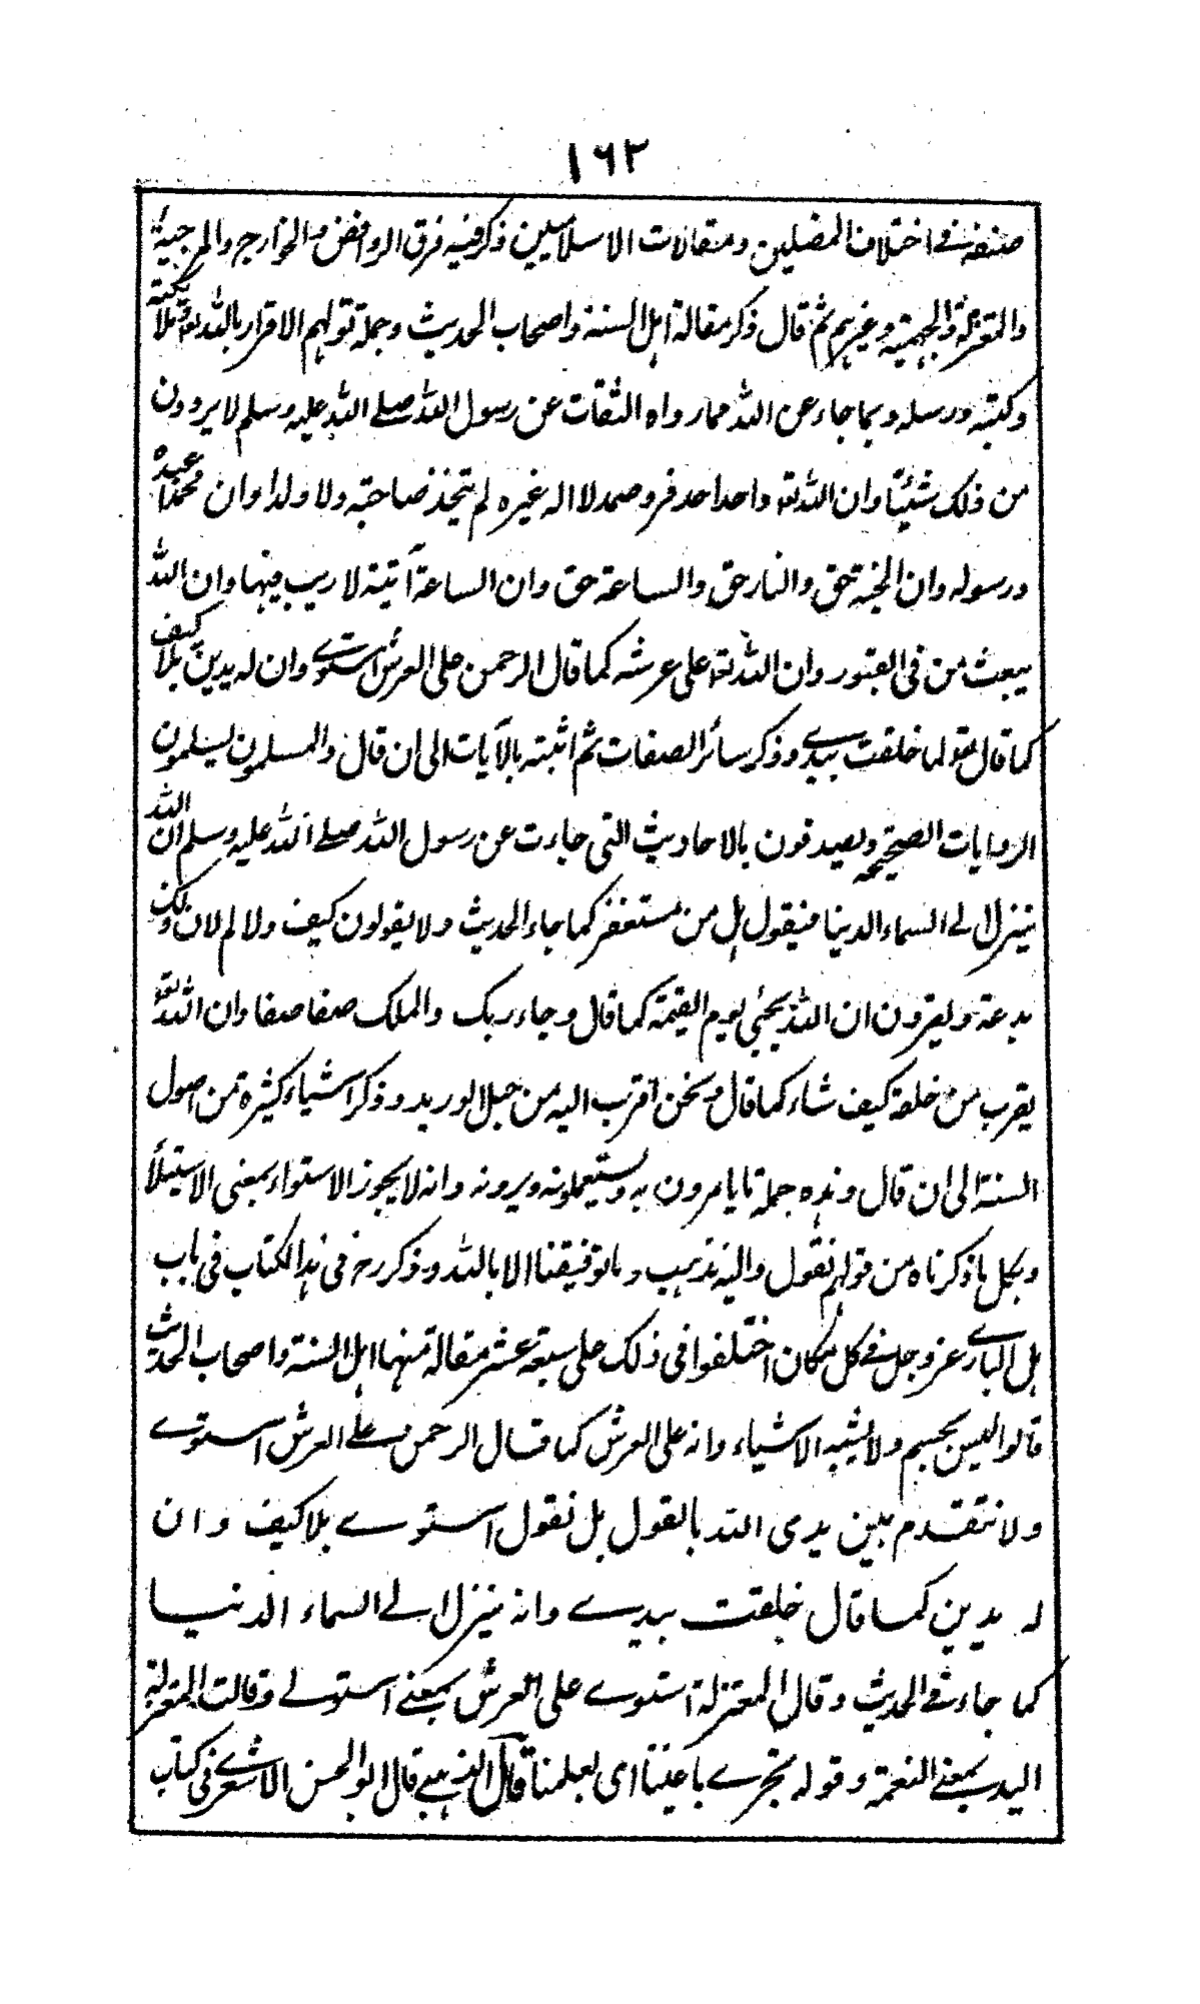 ١٦٢
صنفه فى اختلاف المضلين ومقالات الاسلاميين ذكر فيه فرق الروافض والخوارج والمرجية
والمعتزلة والجهمية وغيرهم ثم قال ذكر مقالة اهل السنة واصحاب الحديث وجملة قولهم الاقرار بالله تعه وملائكته
وكتبه ورسله وبما جاء عن الله مما رواه الثقات عن رسول الله صلى الله عليه وسلم لا يردون
من ذلك شيئا وان الله تعه واحد احد فرد صمد لا اله غيره لم يتخذ صاحبة ولا ولدا وان محمدا عبده
ورسوله وان الجنة حق والنار حق والساعة حق وان الساعة آتية لا ريب فيها وان الله
يبعث من فى القبور وان الله تعه على عرشه كما قال الرحمن على العرش استوى وان له يدين بلا كيف
كما قال تعه لما خلقت بيدى وذكر سائر الصفات ثم اثبته بالآيات الى ان قال والمسلمون يسلمون
الروايات الصحيحة ويصدقون بالاحاديث التى جاءت عن رسول الله صلى الله عليه وسلم ان الله
ينزل الى السماء الدنيا فيقول هل من مستغفر كما جاء الحديث ولا يقولون كيف ولا لم لان ذلك
بدعة ويقرون ان الله يجئ يوم القيمة كما قال وجاء ربك والملك صفا صفا وان الله تعه
يقرب من خلقه كيف شاء كما قال ونحن اقرب اليه من حبل الوريد وذكر اشياء كثيرة من اصول
السنة الى ان قال وهذه جملة ما يامرون به ويستعملونه ويرونه وانه لا يجوز الاستواء بمعنى الاستيلأ
وبكل ما ذكرناه من قولهم نقول واليه نذهب وما توفيقنا الا بالله وذكر رح فى هذا الكتاب فى باب
هل البارى عز وجل فى كل مكان اختلفوا فى ذلك على سبعة عشر مقالة منها اهل السنة واصحاب الحديث
قالوا ليس بجسم ولا يشبه الاشياء وانه على العرش كما قال الرحمن على العرش استوى
ولا نتقدم بين يدى الله بالقول بل نقول استوى بلا كيف وان
له يدين كما قال خلقت بيدى وانه ينزل الى السماء الدنيا
كما جاء فى الحديث وقال المعتزلة استوى على العرش بمعنى استولى وقالت المعتزلة
اليد بمعنى النعمة وقوله تجرى باعيننا اى بعلمنا قال الذهبى قال ابو الحسن الاشعرى فى كتاب